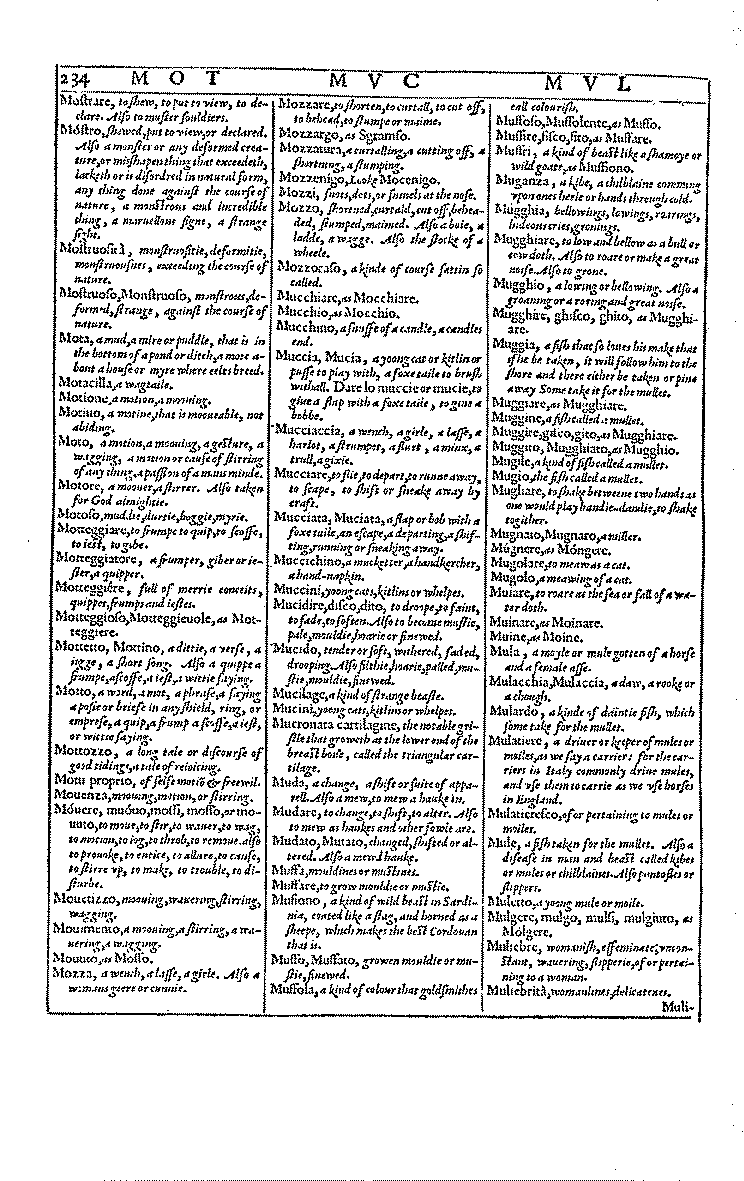 234 M O T M V C M V L
Mostrare, to shew, to put to view, to de-
clare. Also to muster souldiers.
Móstro, shewed, put to view, or declared.
Also a monster or any deformed crea-
ture, or misshapen thing that exceedeth,
lacketh or is disordred in natural form,
any thing done against the course of
nature, a monstrous and incredible
thing, a maruellous signe, a strange
sight.
Mostruosità, monstruositie, deformitie,
monstruousnes, exceeding the course of
nature.
Mostruoso, Monstruoso, monstrous, de-
formed, strange, against the course of
nature.
Mota, a mud, a mire or puddle, that is in
the bottom of a pond or ditch, a mote a-
bout a house or myre where eeles breed.
Motacilla, a wagtaile.
Motione, a motion, a moouing.
Motiuo, a motiue, that is mooueable, not
abiding.
Moto, a motion, a moouing, a gesture, a
wagging, a motion or cause of stirring
of any thing, a passion of a mans minde.
Motore, a moouer, a stirrer. Also taken
for God almightie.
Motoso, muddie, durtie, boggie, myrie.
Motteggiare, to frumpe to quip, to scoffe,
to iest, to gibe.
Motteggiatore, a frumper, giber or ie-
ster, a quipper.
Motteggiére, full of merrie conceits,
quippes, frumps and iestes.
Motteggioso, Motteggieuole, as Mot-
teggiere.
Mottetto, Mottino, a dittie, a verse, a
iigge, a short song. Also a quippe a
frumpe, a scoffe, a iest, a wittie saying.
Motto, a word, a mot, a phrase, a saying
a posie or briefe in any shield, ring, or
emprese, a quip, a frump a scoffe, a iest,
or wittie saying.
Mottozzo, a long tale or discourse of
good tidings, a tale of reioicing.
Motu proprio, of selfe motiõ & freewil.
Mouenza, moouing, motion, or stirring.
Móuere, muóuo, mossi, mosso, or mo-
uuto, to moue, to stir, to wauer, to wag,
to motion, to iog, to throb, to remoue. also
to prouoke, to entice, to allure, to cause,
to stirre vp, to make, to trouble, to di-
sturbe.
Mouetizzo, moouing, wauering, stirring,
wagging.
Mouimento, a moouing, a stirring, a wa-
uering, a wagging.
Mouuto, as Mosso.
Mozza, a wench, a lasse, a girle. Also a
womans geere or cunnie.
Mozzare, to shorten, to curtall, to cut off,
to behead, to stumpe or maime.
Mozzargo, as Sgramso.
Mozzatura, a curtalling, a cutting off, a
shortning, a stumping.
Mozzenigo, Looke Mocenigo.
Mozzi, snots, dets, or snuels at the nose.
Mozzo, shortned, curtald, cut off, behea-
ded, stumped, maimed. Also a boie, a
ladde, a wagge. Also the stocke of a
wheele.
Mozzoraso, a kinde of course sattin so
called.
Mucchiare, as Mocchiare.
Mucchio, as Mocchio.
Mucchino, a snuffe of a candle, a candles
end.
Muccia, Mucia, a yoong cat or kitlin or
pusse to play with, a foxe taile to brush
withall. Dare lo muccie or mucie, to
giue a flap with a foxe taile, to giue a
bobbe.
Mucciaccia, a wench, a girle, a lasse, a
harlot, a strumpet, a flurt, a minx, a
trull, a gixie.
Mucciare, to flie, to depart, to runne away,
to scape, to shift or sneake away by
craft.
Mucciata, Muciata, a flap or bob with a
foxe taile, an escape, a departing, a shif-
ting, running or sneaking away.
Muccichino, a mucketter, a handkercher,
a hand-napkin.
Muccini, yoong cats, kitlins or whelpes.
Mucidire, disco, dito, to droope, to faint,
to fade, to soften. Also to become mustie,
pale, mouldie, hoarie or finewed.
Mucido, tender or soft, withered, faded,
drooping. Also filthie, hoarie, palled, mu-
stie, mouldie, finewed.
Mucilage, a kind of strange beaste.
Mucini, yoong cats, kitlins or whelpes.
Mucronata cartilagine, the notable gri-
stle that groweth as the lower end of the
breast bone, called the triangular car-
tilage.
Muda, a change, a shift or suite of appa-
rell. Also a mew, to mew a hauke in.
Mudare, to change, to shift, to alter. Also
to mew as haukes and other fowle are.
Mudato, Mutato, changed, shifted or al-
tered. Also a mewd hauke.
Muffa, mouldines or mustines.
Muffare, to grow mouldie or mustie.
Mufiono, a kind of wild beast in Sardi-
nia, coated like a stag, and horned as a
sheepe, which makes the best Cordouan
that is.
Muffo, Muffato, growen mouldie or mu-
stie, finewed.
Muffola, a kind of colour that goldsmithes
call colourish.
Muffoso, Muffolente, as Muffo.
Muffire, fisco, fito, as Muffare.
Muffri, a kind of beast like a shamoye or
wild goate, as Muffiono.
Muganza, a kibe, a chilblaine comming
vpon ones heele or hands through cold.
Mugghia, bellowings, lowings, roarings,
hideous cries, gronings.
Mugghiare, to low and bellow as a bull or
cow doth. Also to roare or make a great
noise. Also to grone.
Mugghio, a lowing or bellowing. Also a
groaning or a roring and great noise.
Mugghire, ghisco, ghito, as Mugghi-
are.
Muggia, a fish that so loues his make that
if he be taken, it will follow him to the
shore and there either be taken or pine
away Some take it for the mullet.
Muggiare, as Mugghiare.
Muggine, a fish called a mullet.
Muggire, gisco, gito, as Mugghiare.
Muggito, Mugghiato, as Mugghio.
Mugile, a kind of fish called a mullet.
Mugio, the fish called a mullet.
Mugliare, to shake betweene two hands as
one would play handie-dandie, to shake
together.
Mugnaio, Mugnaro, a miller.
Múgnere, as Móngere.
Mugolare, to mew as a cat.
Mugolo, a meawing of a cat.
Muiare, to roare as the sea or fall of a wa-
ter doth.
Muinare, as Moinare.
Muine, as Moine.
Mula, a moyle or mule gotten of a horse
and a female asse.
Mulacchia, Mulaccia, a daw, a rooke or
a chough.
Mulardo, a kinde of daintie fish, which
some take for the mullet.
Mulatiere, a driuer or keeper of mules or
moiles, as we say a carrier: for the car-
riers in Italy commonly driue mules,
and vse them to carrie as we vse horses
in England.
Mulatieresco, of or pertaining to mules or
moiles.
Mule, a fish taken for the mullet. Also a
disease in man and beast called kibes
or mules or chilblaines. Also pantofles or
slippers.
Muletto, a yoong mule or moile.
Mulgere, mulgo, mulsi, mulgiuto, as
Mólgere.
Muliebre, womanish, effeminate, vncon-
stant, wauering, slipperie, of or pertai-
ning to a woman.
Muliebrità, womanlines, delicatenes.
Muli-